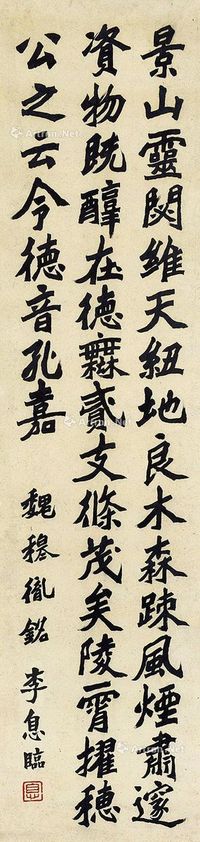 景山靈閟維天紐地良木森疎風煙肅邃
資物旣醇在德無貳支條茂矣陵霄擢穗
公之云令德音孔嘉
魏穆胤銘 李息臨
息